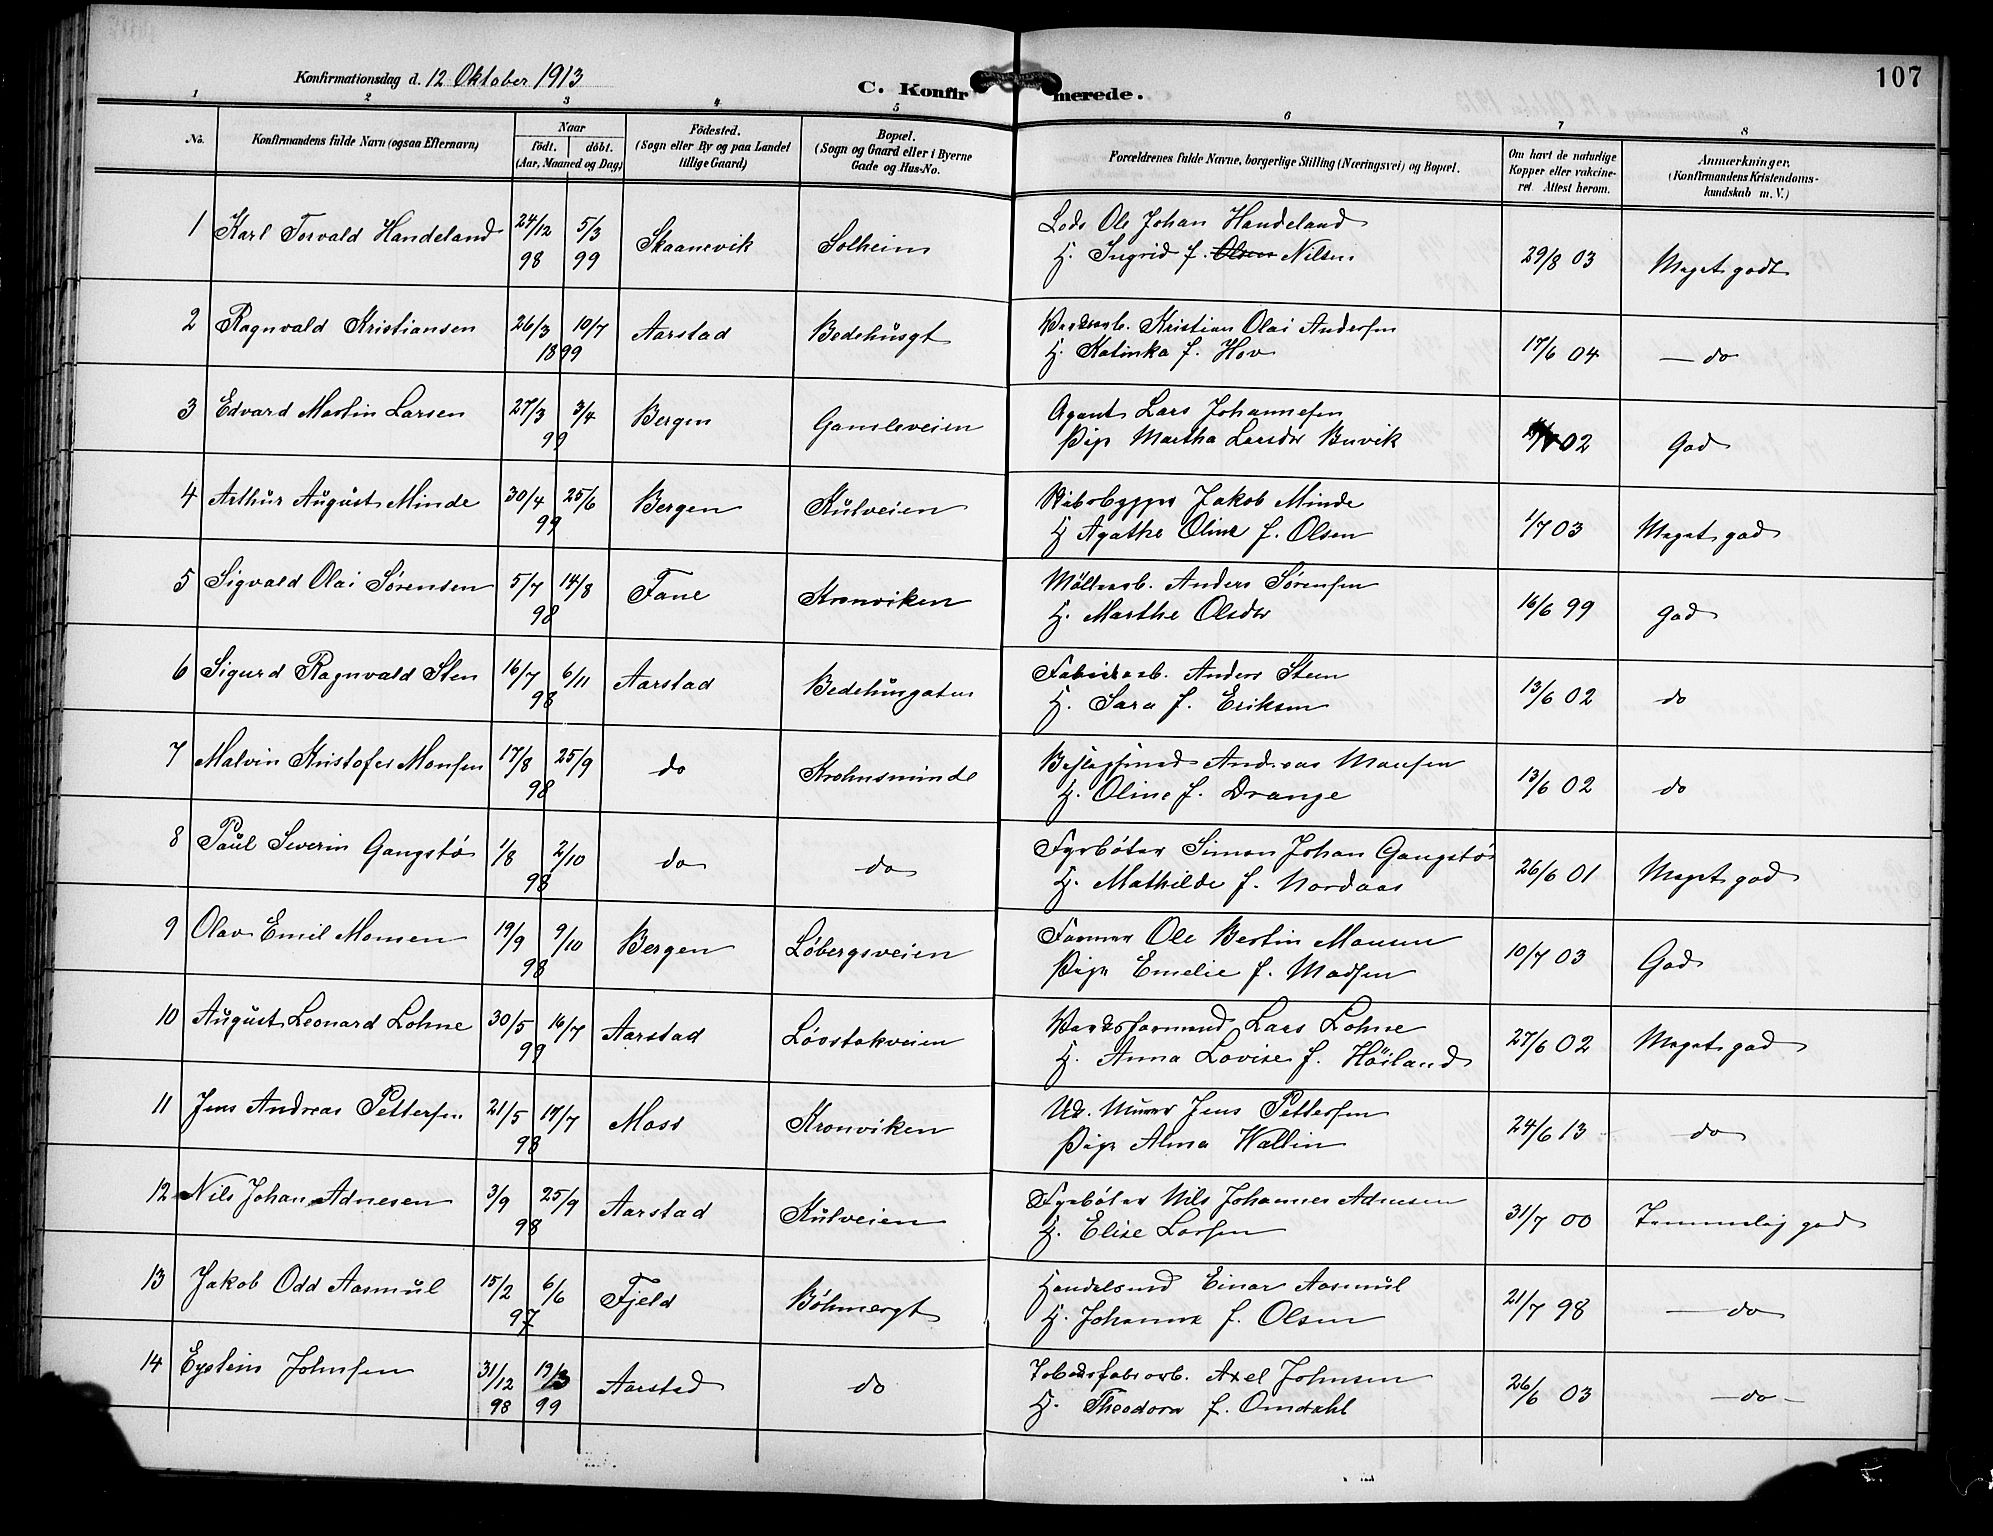 107
Konfirmationsdag d. 12 Oktober 1913
C. Konfirmerede.
1 2 3 4 5 6 7 8
No. Konfirmandens fulde Navn (ogsaa Efternavn) Naar födt. döbt. (Aar, Maaned og Dag) Födested. (Sogn eller By og paa Landet tillige Gaard) Bopæl. (Sogn og Gaard eller i Byerne Gade og Hus-No. Forældrenes fulde Navne, borgerlige Stilling (Næringsvei) og Bopæl. Om havt de naturlige Kopper eller vakcineret. Attest herom. Anmærkninger. (Konfirmandens Kristendomskundskab m. V.)
1 Karl Torvald Handeland 24/12 98 5/3 99 Skaanevik Solheim Lods Ole Johan Handeland
H. Ingrid f. Olsen Nilsen 29/8 03 Meget godt
2 Ragnvald Kristiansen 26/3 10/7 1899 Aarstad Bedehusgt Kristian Olai Andersen
H. Katinka f. Hov 17/6 04 — do
3 Edvard Martin Larsen 27/3 3/4 99 Bergen Gamleveien Agent Lars Johannesen
Pige Martha Larsdtr Buvik 02 God
4 Arthur August Minde 30/4 25/6 99 Bergen Kulveien Jakob Minde
H Agathe Oline f. Olsen 1/7 03 Meget god
5 Sigvald Olai Sørensen 5/7 14/8 98 Fane Kronviken Möllearb. Anders Sörensen
H. Marthe Olsdtr 16/6 99 God
6 Sigurd Ragnvald Sten 16/7 6/11 98 Aarstad Bedehusgaten Fabrikarb. Anders Steen
H. Sara f. Eriksen 13/6 02 do
7 Malvin Kristofer Monsen 17/8 25/9 98 do Krohnsminde Andreas Monsen
H. Oline f. Drange 13/6 02 do
8 Paul Severin Gangstø 1/8 2/10 98 do do Fyrböter Simon Johan Gangstø
H. Mathilde f. Nordaas 26/6 01 Meget god
9 Olav Emil Monsen 19/9 9/10 98 Bergen Löbergsveien Farmer Ole Bertin Monsen
Pige Emelie f. Madsen 10/7 03 God
10 August Leonard Lohne 30/5 16/7 99 Aarstad Løvstakveien Lars Lohne
H. Anna Lovise f. Höiland 27/6 02 Meget god
11 Jens Andreas Pettersen 21/5 17/7 98 Moss Kronviken Ud. Murer Jens Pettersen
Pige Alma Wallin 24/6 13 do
12 Nils Johan Adnesen 3/9 25/9 98 Aarstad Kulveien Fyrböter Nils Johannes Adnesen
H. Elise Larsen 31/7 00 Temmelig god
13 Jakob Odd Aasmul 15/2 6/6 97 Fjeld Böhmergt Handelsmd Einar Aasmul
H. Johanne f. Olsen 21/7 98 — do
14 Eystein Johnsen 31/12 98 19/3 99 Aarstad do Axel Johnsen
H. Theodora f. Omdahl 26/6 03 — do —